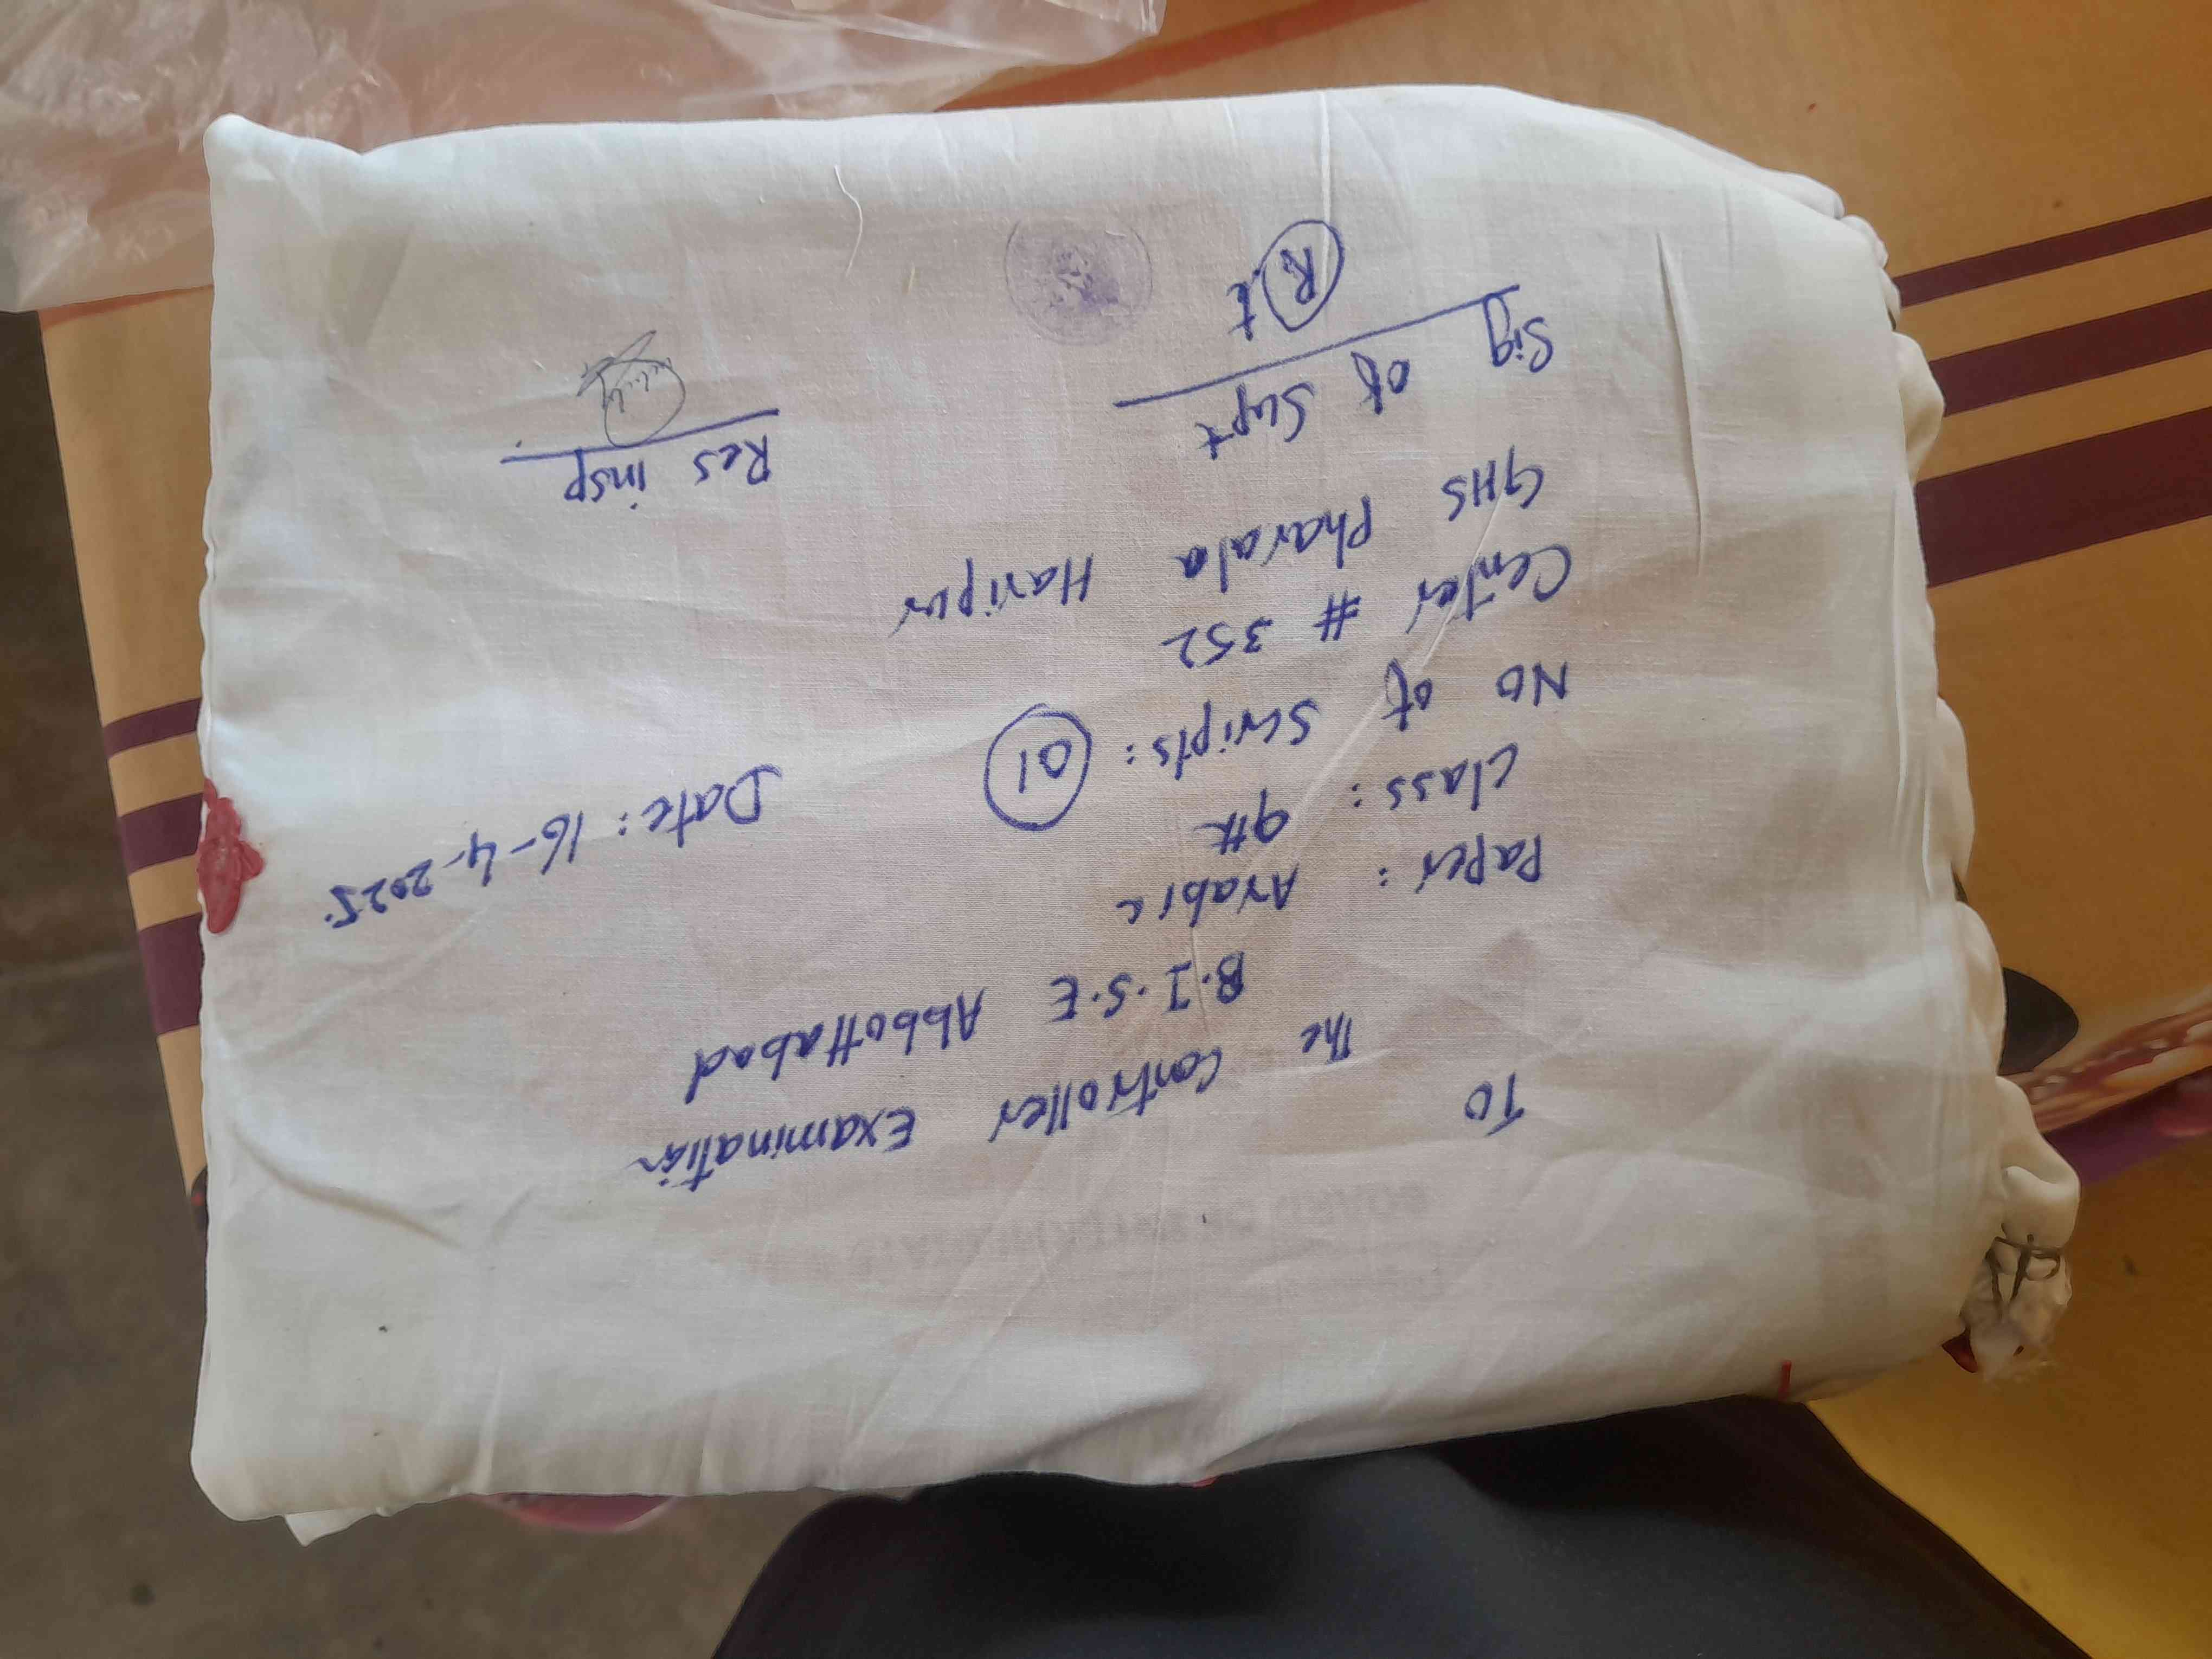 To
The Controller Examination
B.I.S.E Abbottabad
Paper: Arabic
Class: 9th Date: 16-4-2025.
No of Scripts: 01
Center # 352
GHS Pharala Haripur
Sig of Supt Res insp